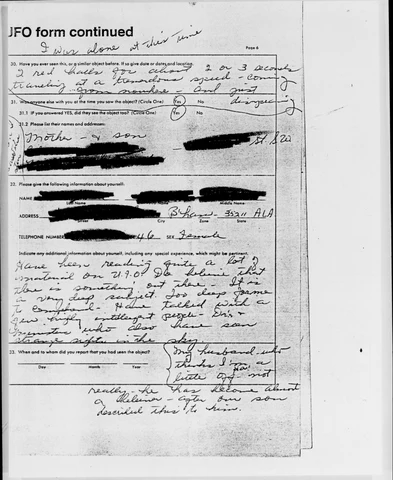 UFO form continued
I was alone at this time
Page 6
30. Have you ever seen this, or a similar object before. If so give date or dates and location.
2 red balls for about 2 or 3 seconds
traveling at a tremendous speed - coming
from nowhere - and just
31. Was anyone else with you at the time you saw the object? (Circle One) Yes No
31.1 If you answered YES, did they see the object too? (Circle One) Yes No
31.2 Please list their names and addresses:
Mother - son
32. Please give the following information about yourself:
NAME
Last Name Middle Name
ADDRESS B'ham - 35211 ALA
Street City Zone State
TELEPHONE NUMBER 46 SEX Female
Indicate any additional information about yourself, including any special experience, which might be pertinent.
Have been reading quite a lot of
material on U.F.O! Do believe that
there is something out there. It is
a very deep subject. Too deep for me
to comprehend. Have talked with a
few highly intelligent people - Drs. &
ministers who also have seen
strange sights in the sky
33. When and to whom did you report that you had seen the object?
Day Month Year
my husband - who
thinks I'm a
little off - not
really - he has become almost
a believer - after our son
described this to him.